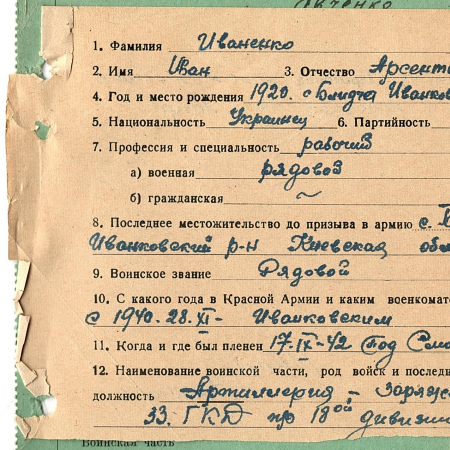 1. Фамилия Иваненко
2. Имя Иван 3. Отчество Арсенть
4. Год и место рождения 1920. с Блидча Иванков
5. Национальность Украинец 6. Партийность
7. Профессия и специальность рабочий
а) военная рядовой
б) гражданская ~
8. Последнее местожительство до призыва в армию с.
Иванковский р-н Киевская обл
9. Воинское звание Рядовой
10. С какого года в Красной Армии и каким военкомат
с 1940. 28. XI - Иванковским
11. Когда и где был пленен 17-IX-42 под
12. Наименование воинской части, род войск и последн
должность Артиллерия - заряж
33. ГКД 18ой дивизи
Воинская часть